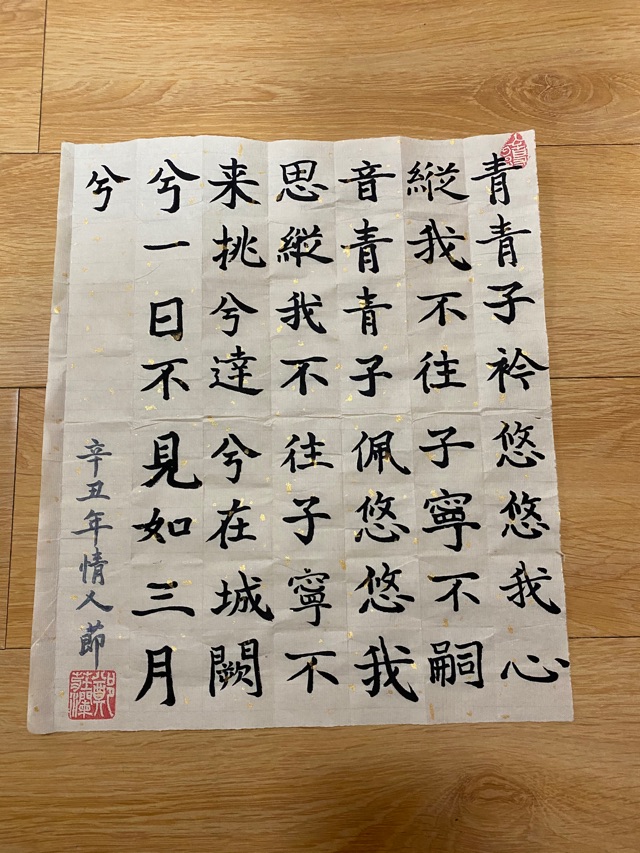 青青子衿悠悠我心
縱我不往子寧不嗣
音青青子佩悠悠我
思縱我不往子寧不
来挑兮達兮在城闕
兮一日不見如三月
兮
辛丑年情人節